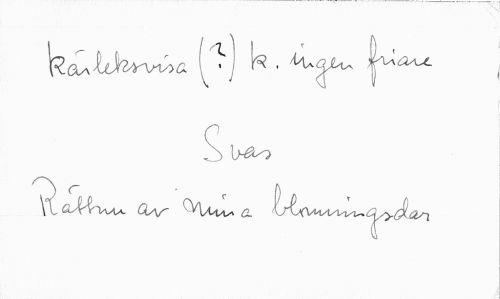 kärleksvisa (?) k. ingen friare
Svar
av mina blomningsdar